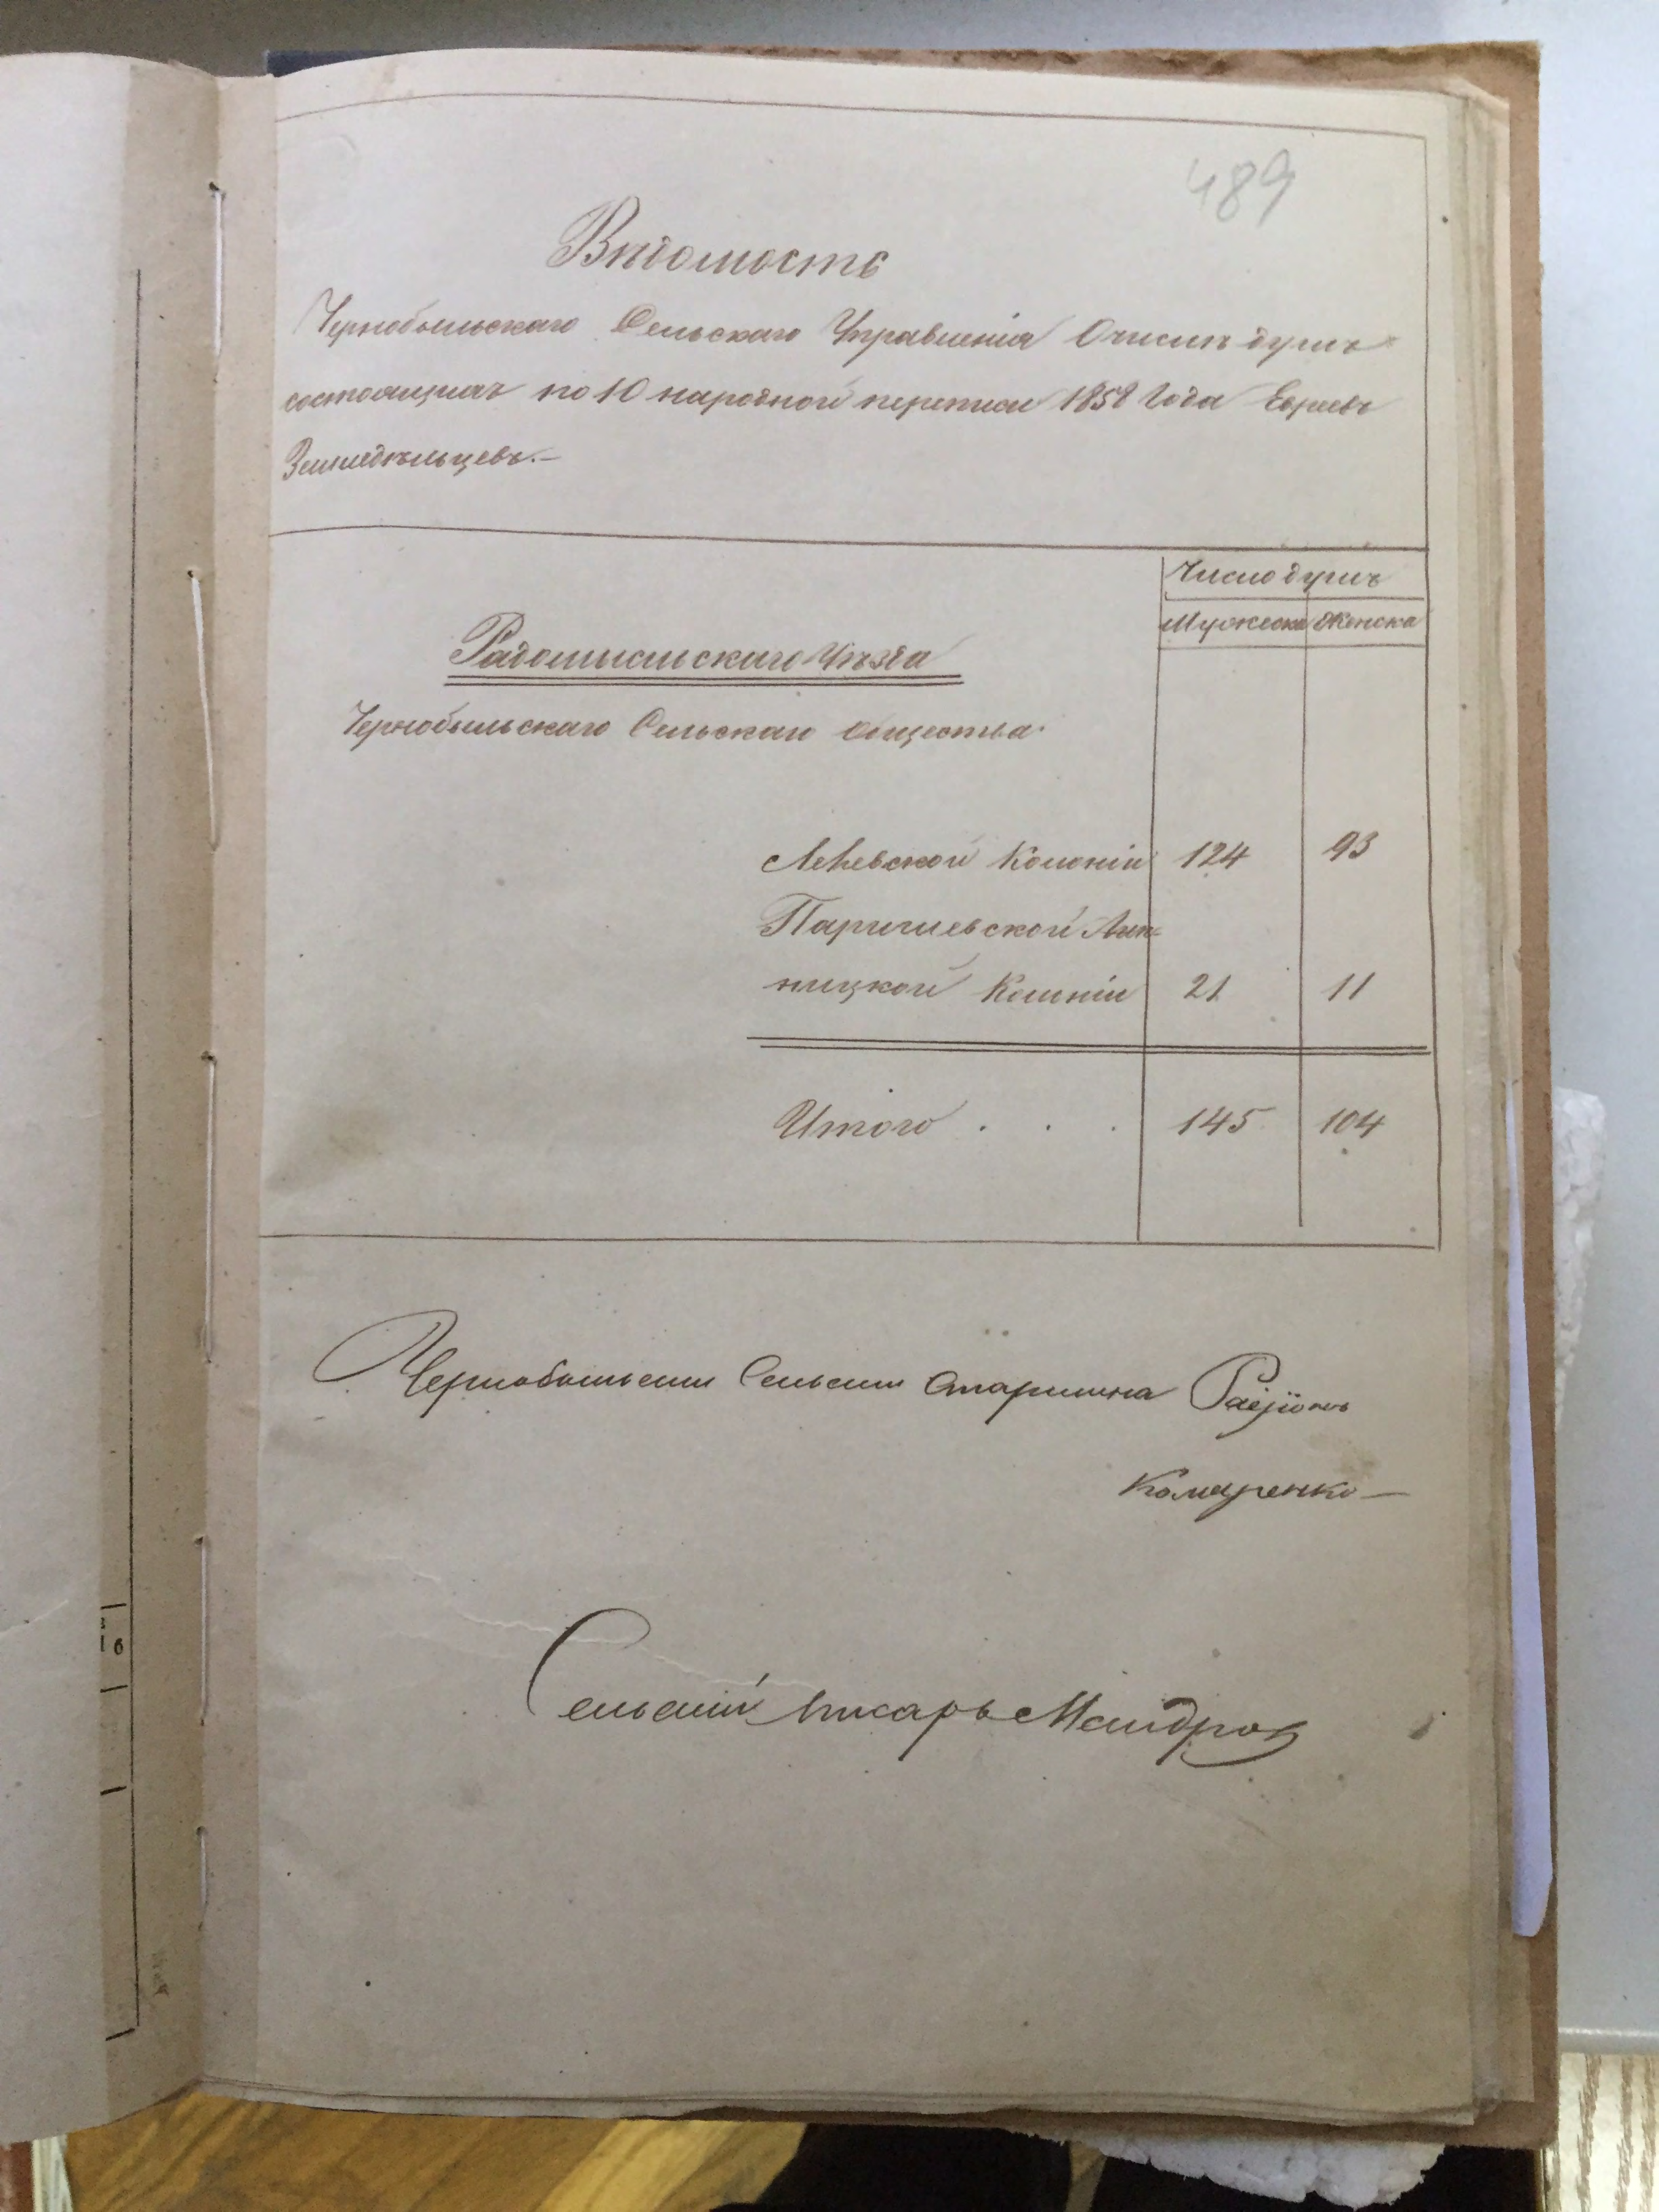 489
Вѣдомость
Чернобыльскаго Сельскаго Управленія Очислѣ душъ
состоящихъ по 10 народной переписи 1858 Года Евреевъ
Земледѣльцевъ.—
Число душъ
Мужеска Женска
Радомысльскаго Уѣзда
Чернобыльскаго Сельскаго Общества.
Колоніи 124 93
Паричиевской
ницкой Колоніи 21 11
Итого . . . 145 104
Чернобыльскій Сельскій Старшина
Комаренко—
Сельскій Писарь
6